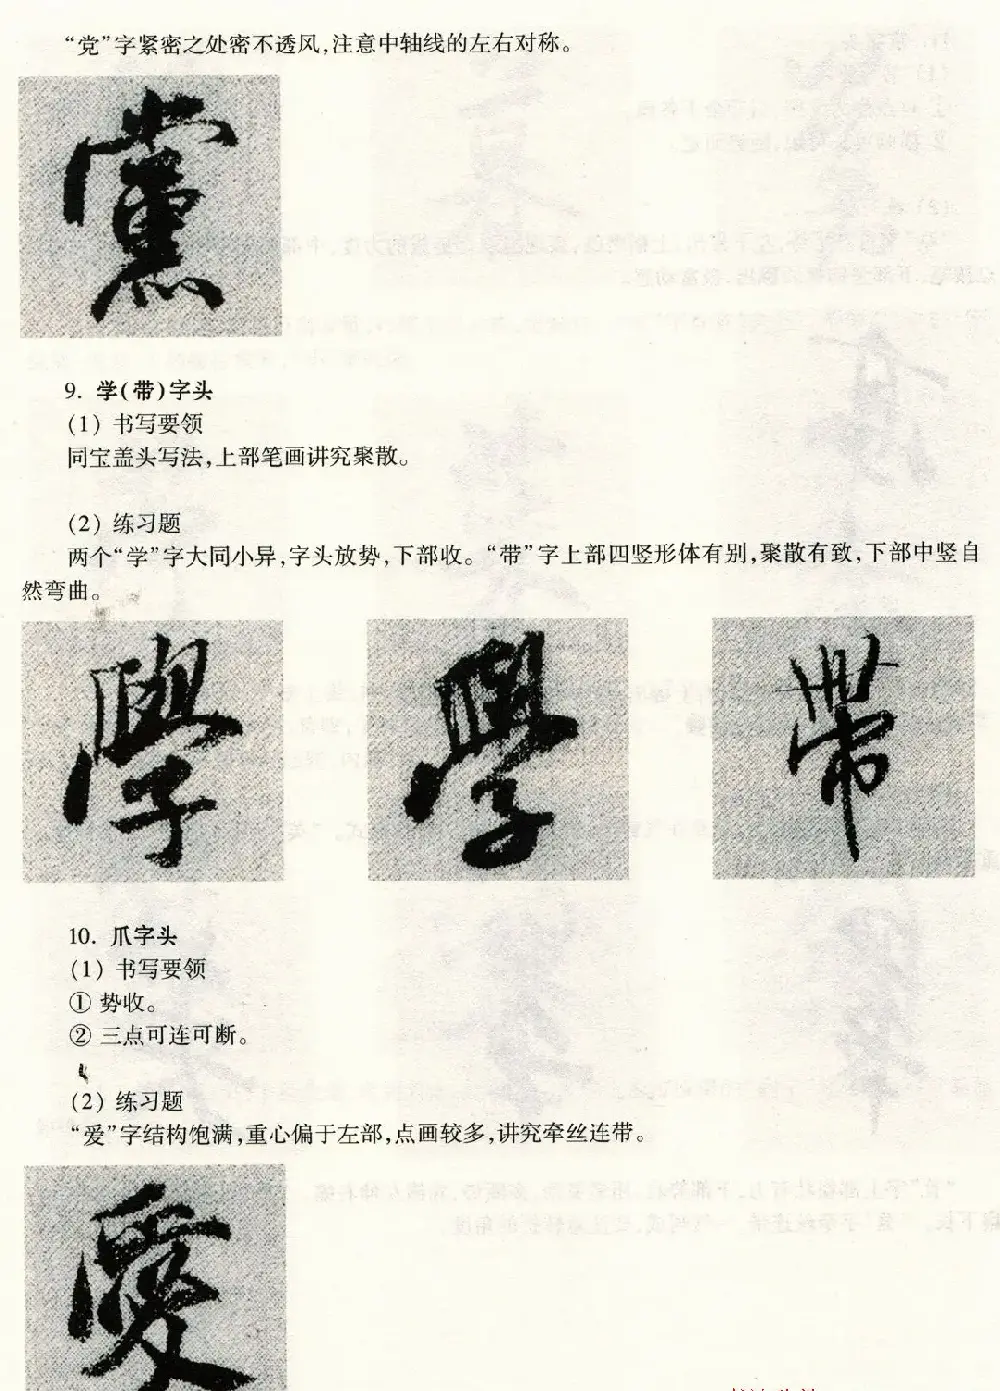 “党”字紧密之处密不透风,注意中轴线的左右对称。
黨
9. 学(带)字头
(1) 书写要领
同宝盖头写法,上部笔画讲究聚散。
(2) 练习题
两个“学”字大同小异,字头放势,下部收。“带”字上部四竖形体有别,聚散有致,下部中竖自
然弯曲。
學 學 帶
10. 爪字头
(1) 书写要领
① 势收。
② 三点可连可断。
(2) 练习题
“爱”字结构饱满,重心偏于左部,点画较多,讲究牵丝连带。
愛